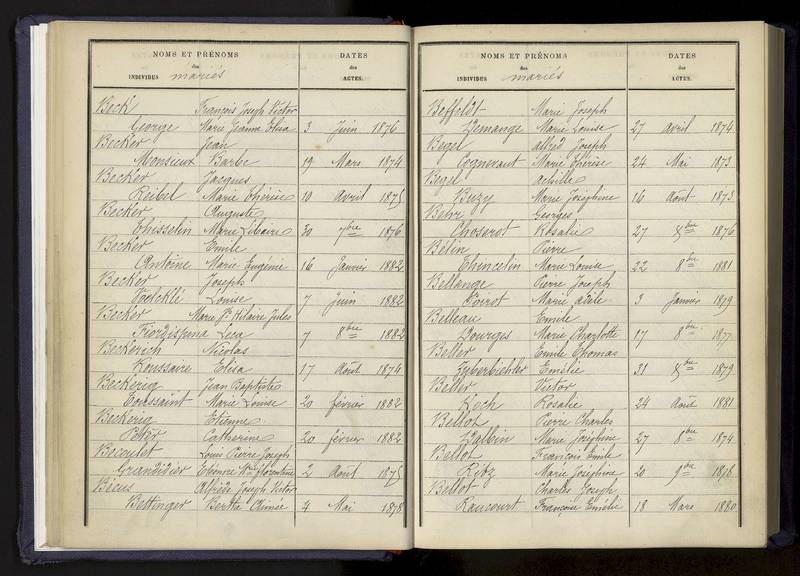 NOMS ET PRÉNOMS DATES
des des
INDIVIDUS mariés ACTES.
Beck François Joseph Victor
George Marie Jeanne Elisa 3 Juin 1876
Becker Jean
Monsieux Barbe 19 Mars 1874
Becker Jacques
Reibel Marie Thérèse 10 Avril 1875
Becker Auguste
Thisselin Marie Libaire 30 7bre 1876
Becker Emile
Antoine Marie Eugénie 16 Janvier 1882
Becker Joseph
Voelcklé Louise 7 Juin 1882
Becker Marie Jh Hilaire Jules
Fiordispina Luca 7 8bre 1882
Beckerich Nicolas
Roussaire Elisa 17 Août 1874
Beckerig Jean Baptiste
Toussaint Marie Louise 20 février 1882
Beckerig Etienne
Peter Catherine 20 février 1882
Bécoulet Louis Pierre Joseph
Grandidier florentine 2 Août 1875
Bécus Alfred Joseph Victor
Bettinger Berthe Aimée 4 Mai 1878
NOMS ET PRÉNOMS DATES
des des
INDIVIDUS mariés ACTES.
Beffeldt Marie Joseph
Demange Marie Louise 27 Avril 1874
Begel Alfred Joseph
Cognevaut Marie Thérèse 24 Mai 1873
Begel Achille
Buzy Marie Joséphine 16 Août 1873
Behr Georges
Choserot Rosalie 27 Xbre 1876
Bélin Pierre
Thincelin Marie Louise 22 8bre 1881
Bellange Pierre Joseph
Poirot Marie Adèle 3 Janvier 1879
Belleau Emile
Dourges Marie Charlotte 17 8bre 1877
Beller Emile Thomas
Zyberbiehler Emélie 31 Xbre 1879
Beller Victor
Koch Rosalie 24 Août 1881
Bellot Pierre Charles
Balbin Marie Joséphine 27 8bre 1874
Bellot François Emile
Ritz Marie Joséphine 20 9bre 1878
Bellot Charles Joseph
Rancourt Françoise Emélie 18 Mars 1880